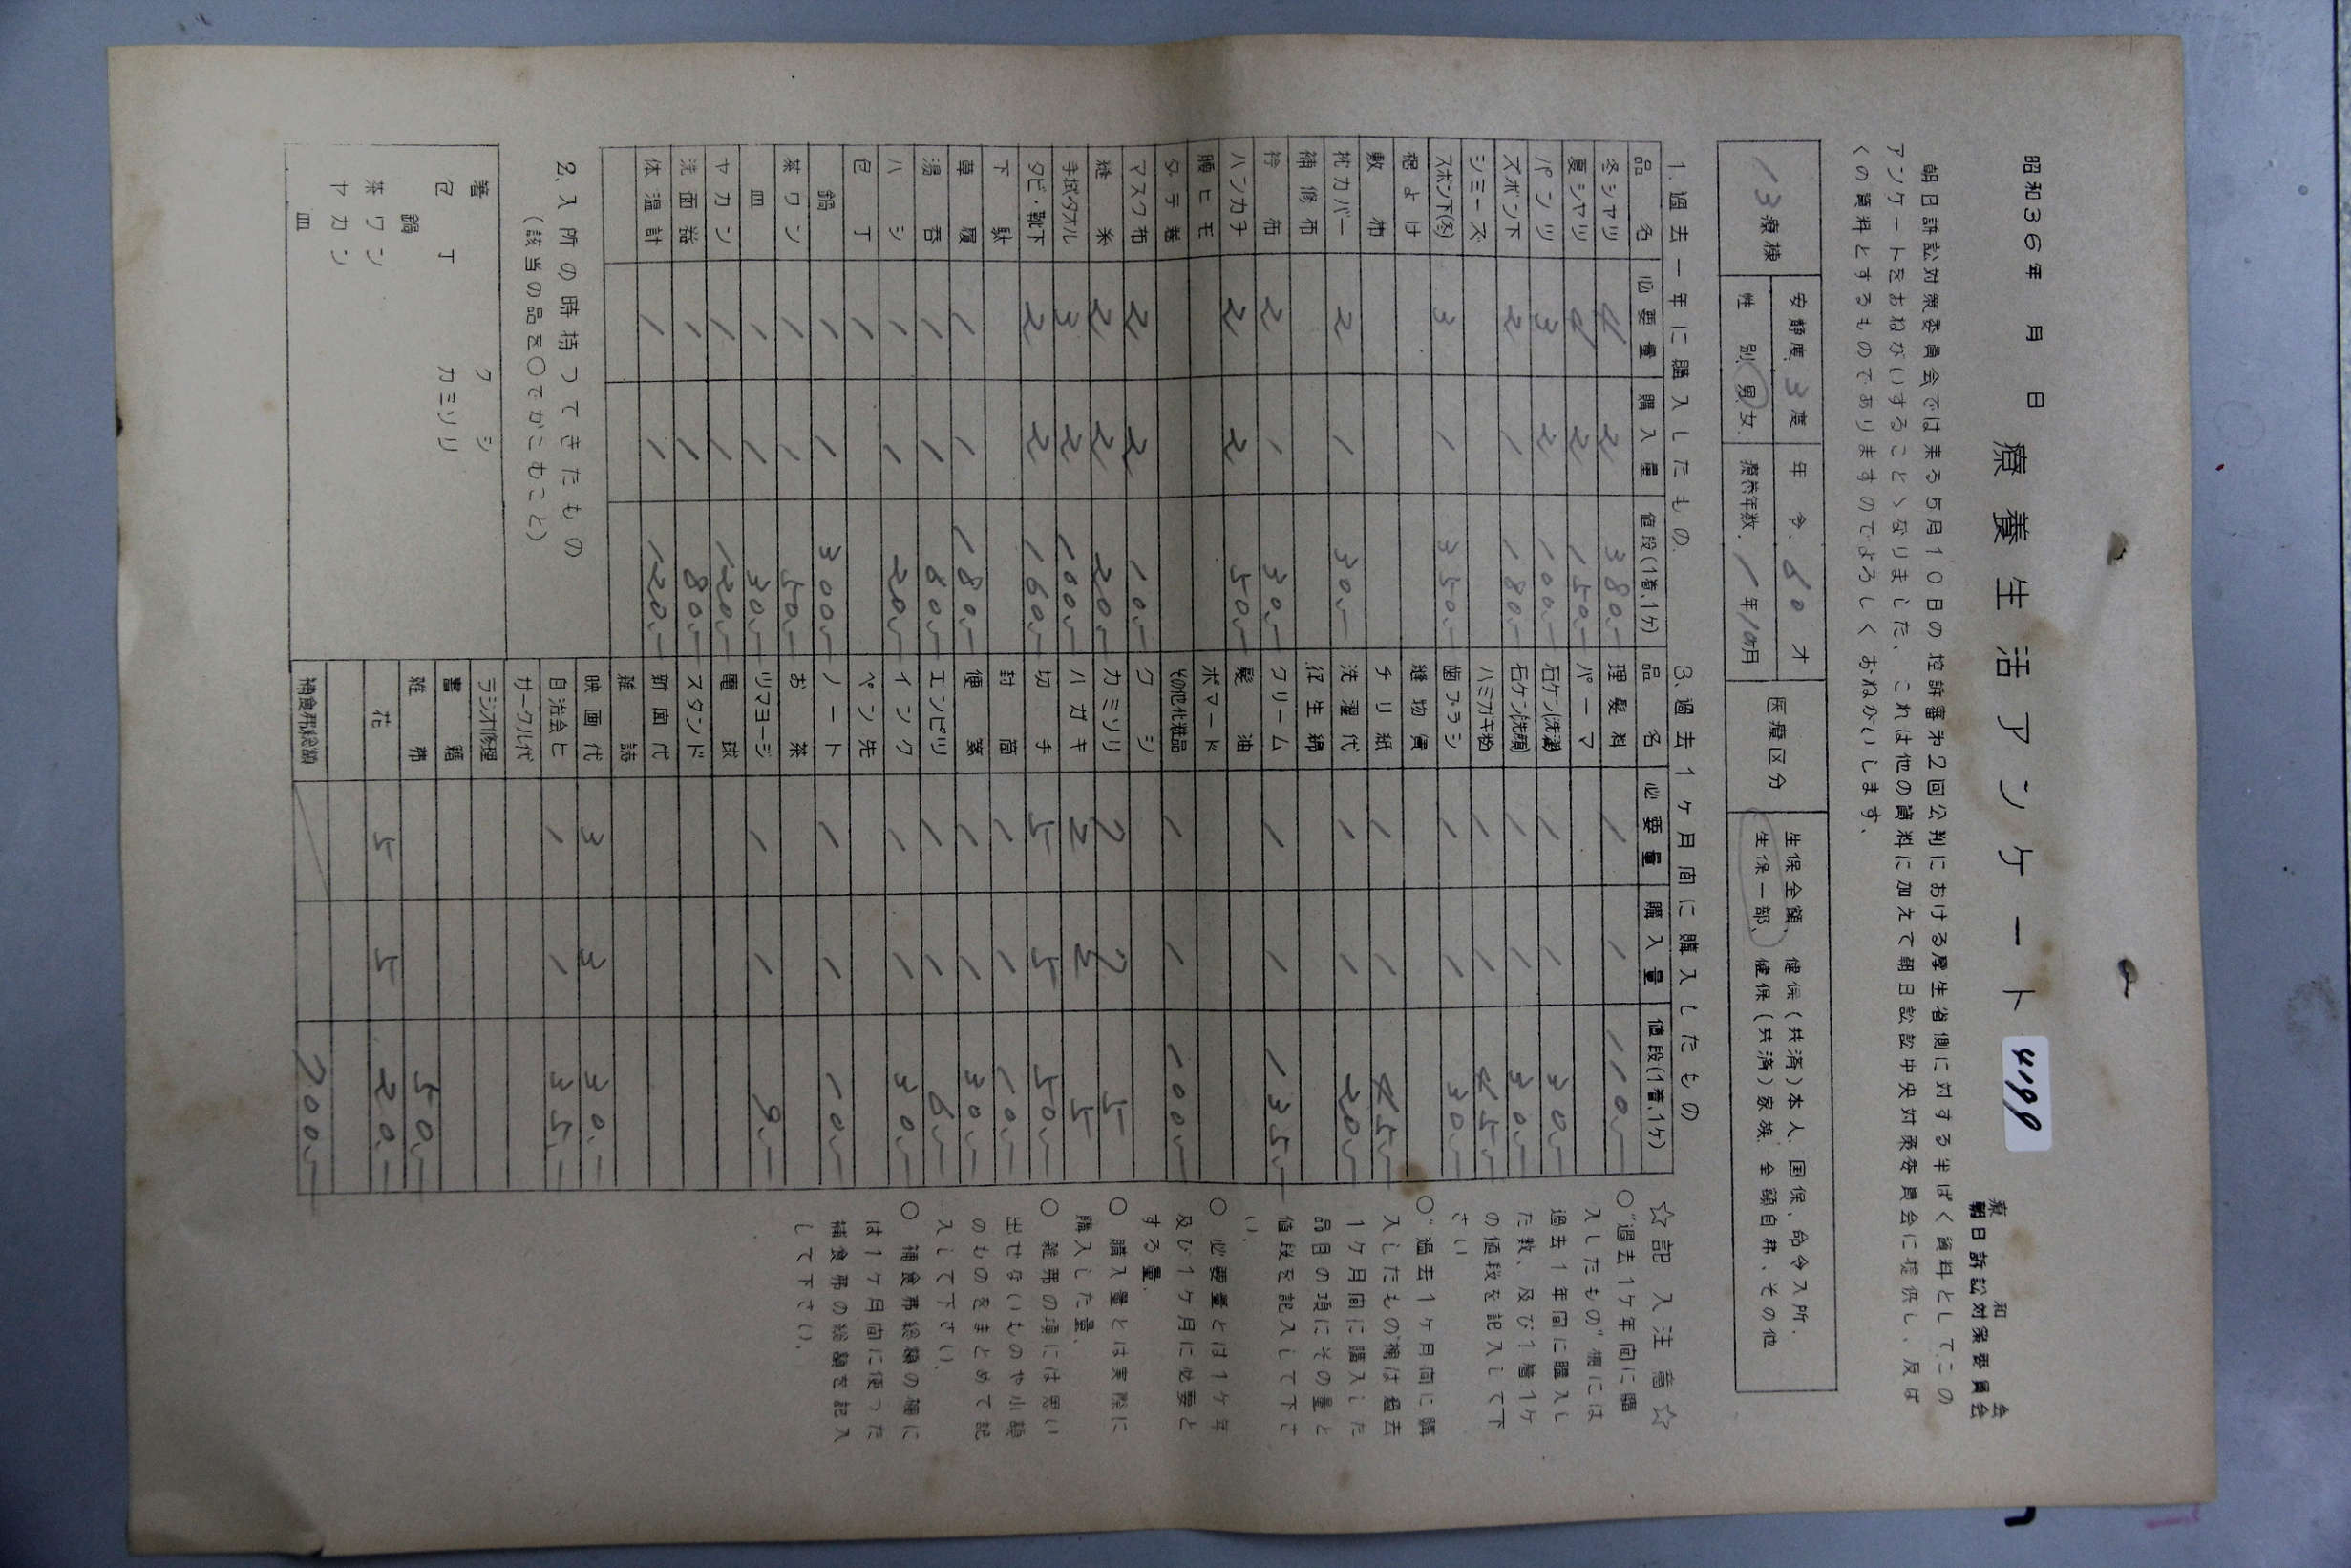 昭和36年　月　日
療養生活アンケート
4199
療和会
朝日訴訟対策委員会
朝日訴訟対策委員会では来る5月10日の控訴審沖2回公判における厚生省側に対する半ばく資料としてこの
アンケートをおねがいすることゝなりました、これは他の資料に加えて朝日訴訟中央対策委員会に提供し、反ば
くの資料とするものでありますのでよろしくおねがいします、
13療棟
安静度 3度
年令. 60才
性別 男.女.
療養年数. 1年10ヵ月
医療区分
生保全額、健保(共済)本人、国保、命令入所.
生保一部、健保(共済)家族、全額自弗、その他
1.過去一年に購入したもの
品名 必要量 購入量 値段(1着、1ケ)
冬シャツ 4 2 380.-
夏シャツ 4 2 150.-
パンツ 3 2 100.-
ズボン下 2 1 180.-
シミーズ
ズボン下(冬) 3 1 350.-
寝よけ
敷布
枕カバー 2 1 30.-
補修布
衿布 2 1 30.-
ハンカチ 2 2 50.-
腰ヒモ
タテ巻
マスク布 2 2 10.-
縫糸 2 2 20.-
手拭タオル 3 2 100.-
タビ・靴下 2 2 160.-
下駄
草履 1 1 180.-
湯呑 1 1 60.-
ハシ 1 1 20.-
包丁 1
鍋 1 1 300.-
茶ワン 1 1 50.-
皿 1 1 30.-
ヤカン 1 1 120.-
洗面器 1 1 80.-
体温計 1 1 120.-
2.入所の時持つてきたもの
(該当の品を〇でかこむこと)
箸　クシ
包丁　カミソリ
鍋
茶ワン
ヤカン
皿
3.過去1ヶ月间に購入したもの
品名 必要量 購入量 値段(1着、1ケ)
理髪料 1 1 110.-
パーマ
石ケン(洗濯) 1 1 30.-
石ケン(洗顔) 1 1 30.-
ハミガキ粉 1 1 45.-
歯ブラシ 1 1 30.-
縫物賃
チリ紙 1 1 45.-
洗濯代 1 1 20.-
衛生綿
クリーム 1 1 135.-
髪油
ポマード
その他化粧品 1 1 100.-
クシ
カミソリ 2 2 5
ハガキ 2 2 5
切手 5 5 50.-
封筒 1 1 10.-
便箋 1 1 30.-
エンピツ 1 1 6.-
インク 1 1 30.-
ペン先
ノート 1 1 10.-
お茶
ツマヨージ 1 1 9.-
電球
スタンド
新闻代
雑誌
映画代 3 3 30.-
自治会ヒ 1 1 35.-
サークル代
ラジオ修理
書籍
雑弗 50.-
花 5 5 20.-
補食弗総額 200.-
☆記入注意☆
〇"過去1ケ年间に購
入したもの"欄には
過去1年间に購入し
た数、及び1着1ケ
の値段を記入して下
さい
〇"過去1ヶ月间に購
入したもの"欄は過去
1ケ月间に購入した
品目の項にその量と
値段を記入して下さ
い、
〇必要量とは1ケ年
及び1ケ月に必要と
する量.
〇購入量とは実際に
購入した量、
〇雑弗の項には思い
出せないものや小額
のものをまとめて記
入して下さい、
〇補食弗総額の欄に
は1ヶ月间に使った
補食弗の総額を記入
して下さい、